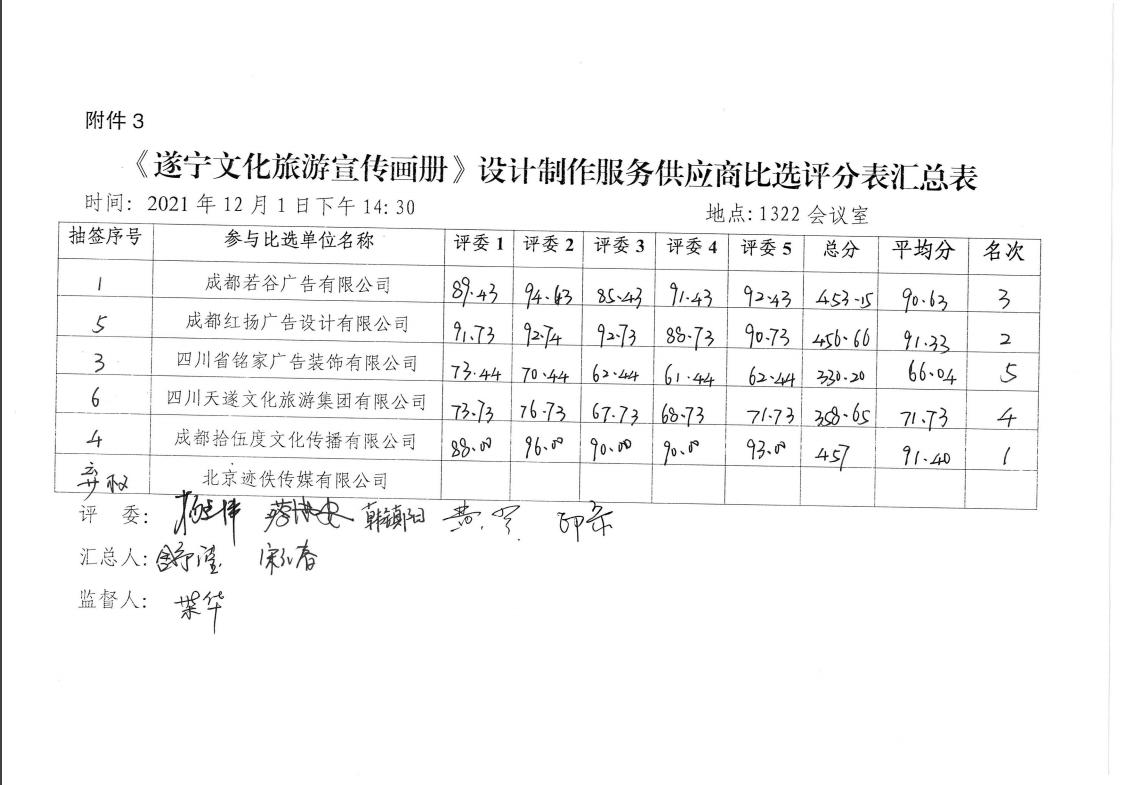 附件 3
《遂宁文化旅游宣传画册》设计制作服务供应商比选评分表汇总表
时间: 2021 年 12 月 1 日下午 14:30 地点:1322 会议室
抽签序号 参与比选单位名称 评委 1 评委 2 评委 3 评委 4 评委 5 总分 平均分 名次
1 成都若谷广告有限公司 89.43 94.43 85.43 91.43 92.43 453.15 90.63 3
5 成都红扬广告设计有限公司 91.73 92.74 92.73 88.73 90.73 456.66 91.33 2
3 四川省铭家广告装饰有限公司 73.44 70.44 62.44 61.44 62.44 330.20 66.04 5
6 四川天遂文化旅游集团有限公司 73.73 76.73 67.73 68.73 71.73 358.65 71.73 4
4 成都拾伍度文化传播有限公司 88.00 96.00 90.00 90.00 93.00 457 91.40 1
弃权 北京迹佚传媒有限公司
评 委: 韩镇阳
汇总人:
监督人: